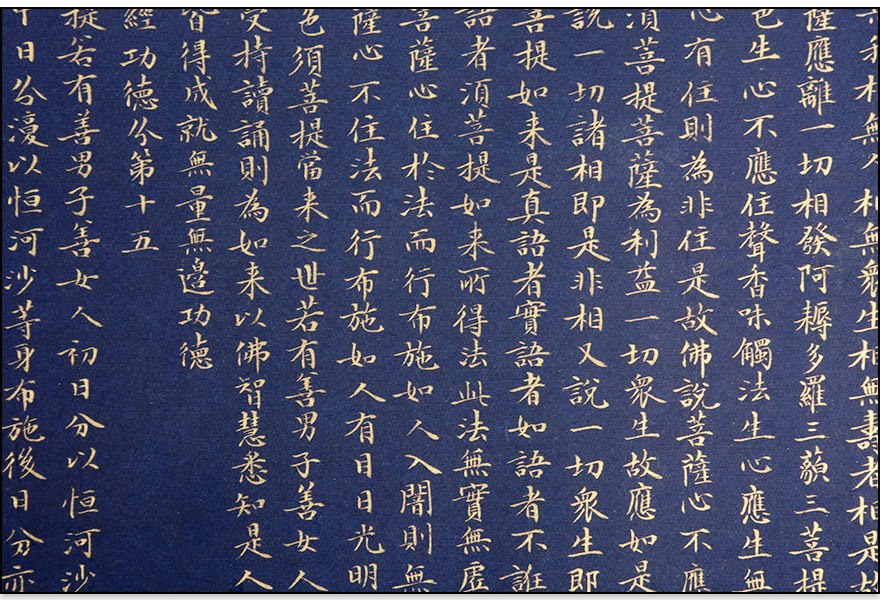 相無人相無衆生相無壽者相是故
薩應離一切相發阿耨多羅三藐三菩提
色生心不應住聲香味觸法生心應生無
心有住則為非住是故佛說菩薩心不應
須菩提菩薩為利益一切衆生故應如是
說一切諸相即是非相又說一切衆生即
菩提如来是真語者實語者如語者不誑
語者須菩提如来所得法此法無實無虛
菩薩心住於法而行布施如人入闇則無
薩心不住法而行布施如人有目日光明
色須菩提當来之世若有善男子善女人
受持讀誦則為如来以佛智慧悉知是人
皆得成就無量無邊功德
經功德分第十五
提若有善男子善女人初日分以恒河沙
中日分復以恒河沙等身布施後日分亦